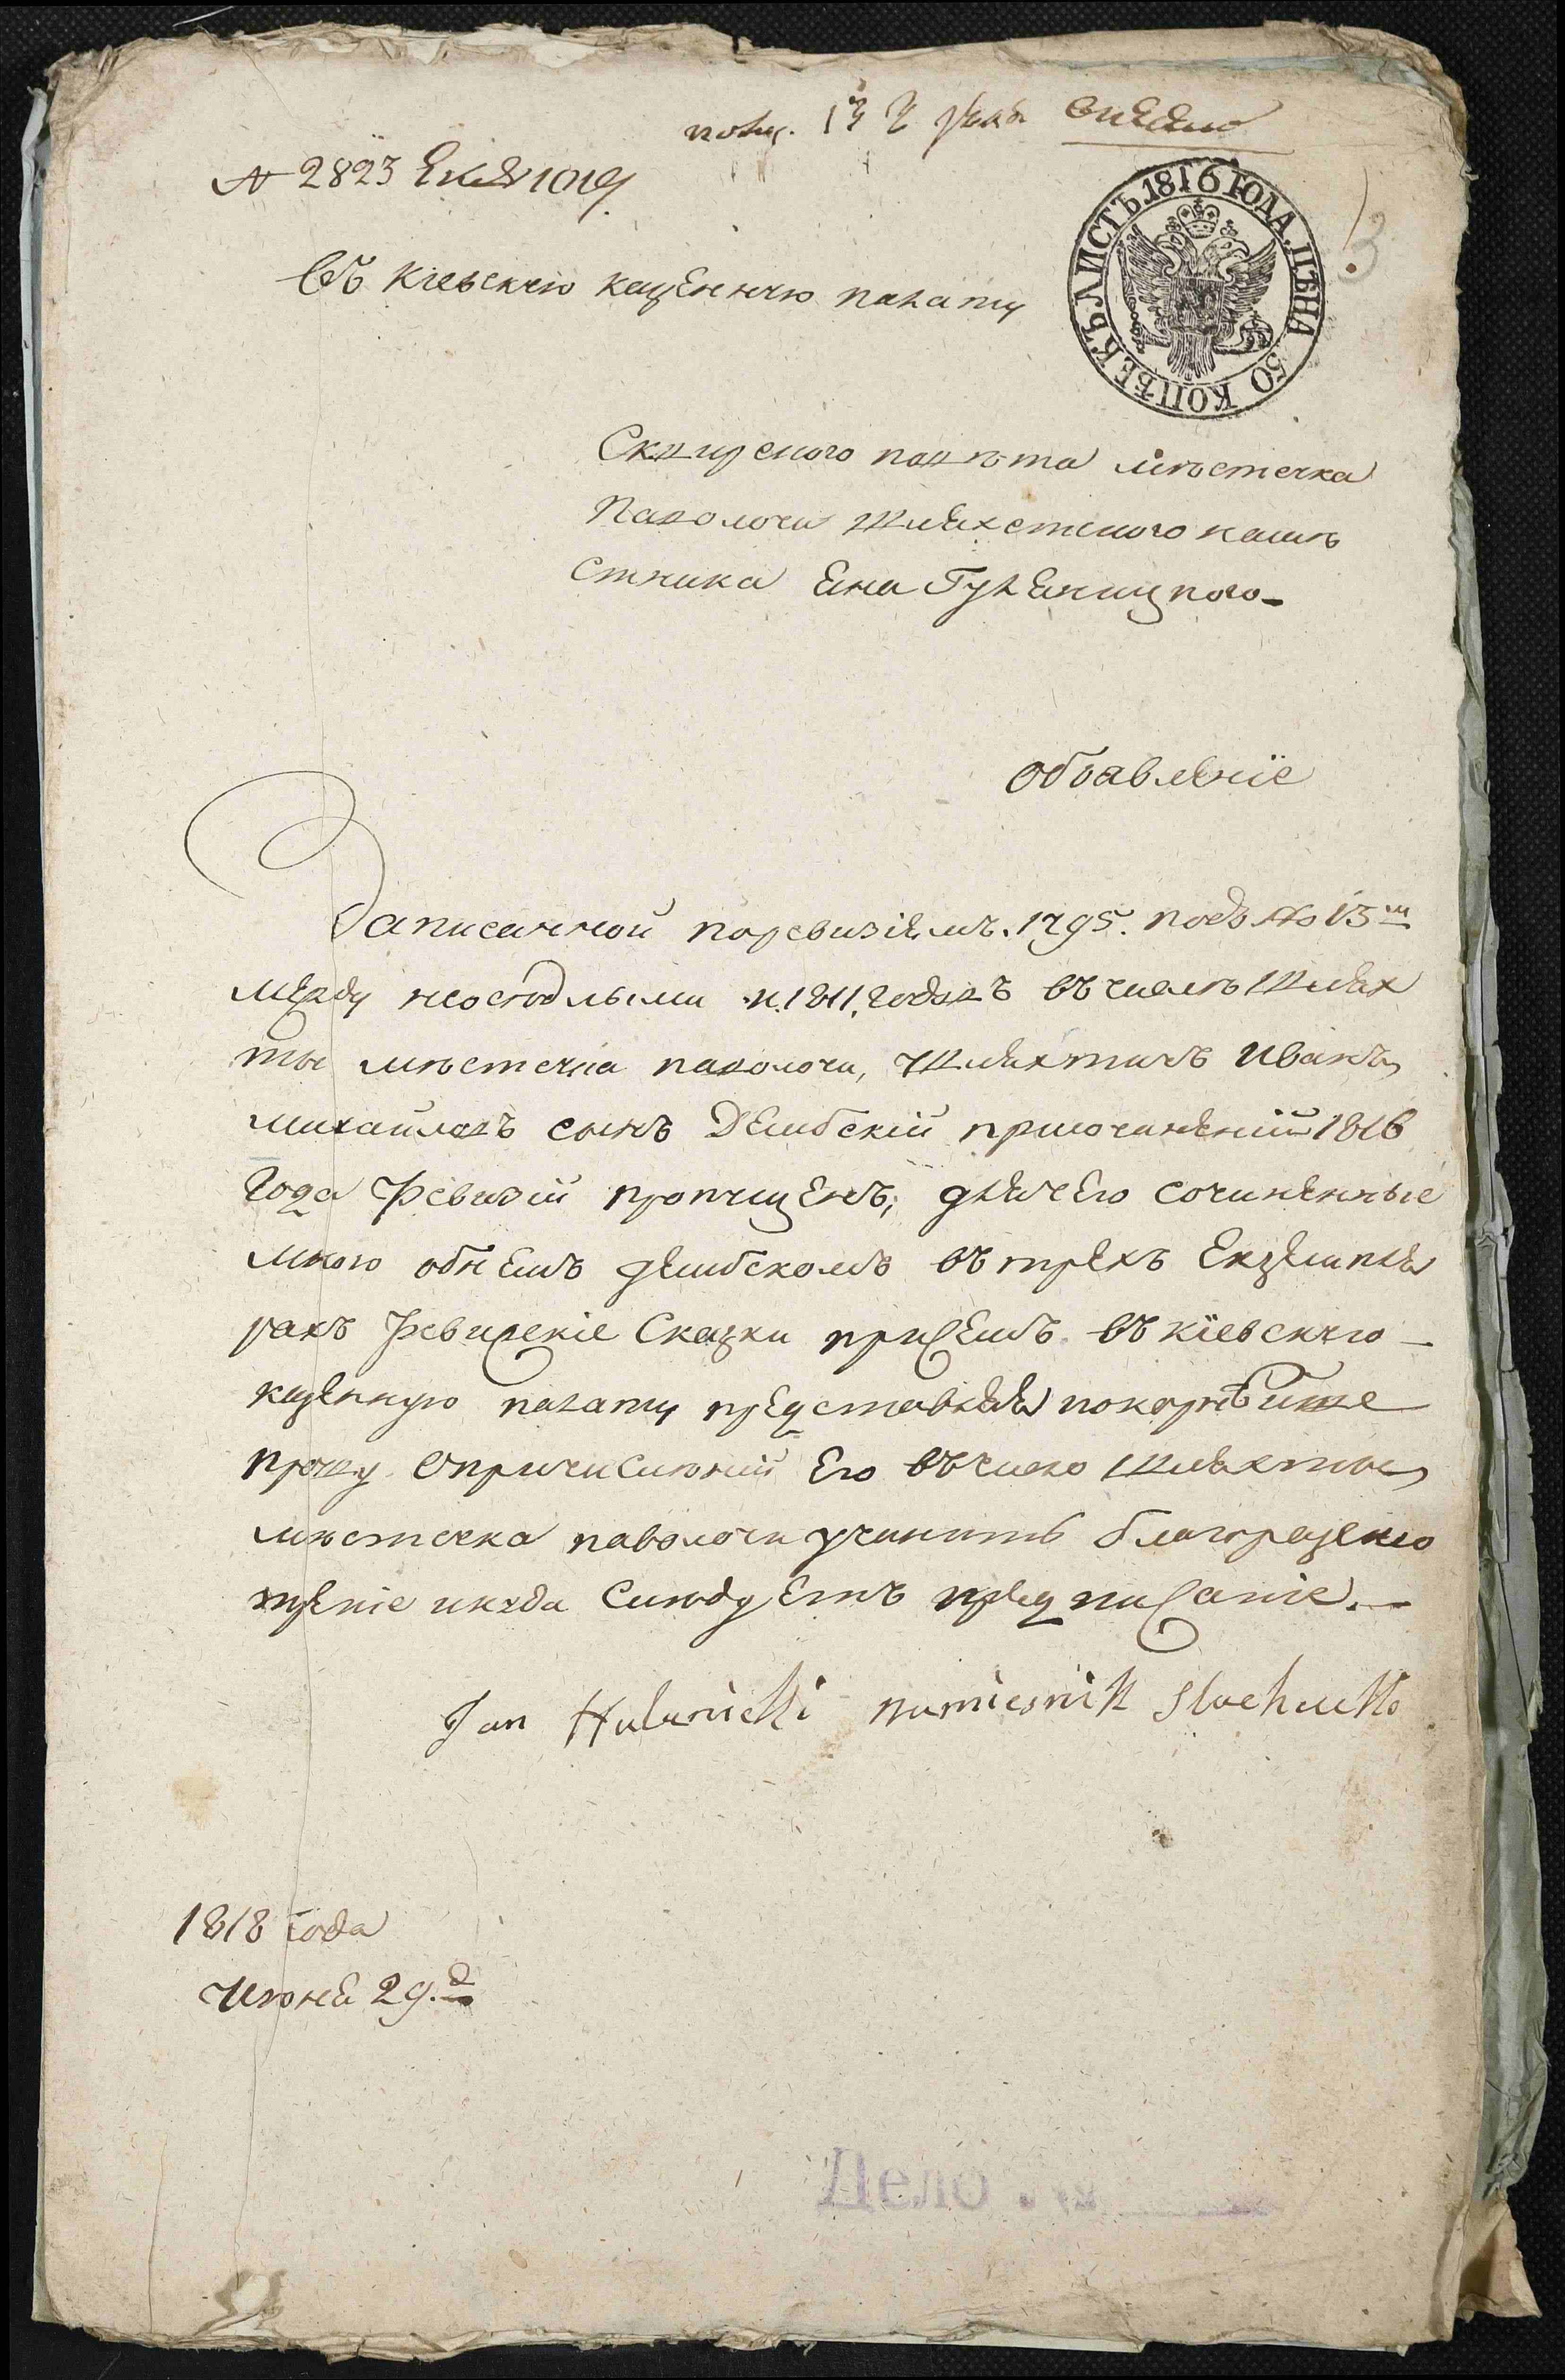 № 2823
ЛИСТЪ 1816 ГОДА. ЦѢНА 50 КОПѢЕКЪ
3
Въ Кіевскую казенную палату
Сквирского повѣта мѣстечка
Паволочи шляхетского намѣ
стника Яна Гуляницкого
объявленіе
Записанной поревизіямъ. 1795. подъ №о 15м
между неосѣдлыми и 1811. годахъ въ числѣ шлях
ты мѣстечка паволочи, шляхтичъ Иванъ
михайловъ сынъ Дембскій присочиненіи 1816
года Ревизіи пропущенъ; для чего сочиненные
мною обнемъ дембскомъ въ трехъ Екземпля
рахъ Ревизскіе Сказки присемъ въ кіевскую
казенную палату представляя покорнѣише
прошу опричисленіи Его въ число шляхты
мѣстечка паволочи учинить благоразсмо
тренie икуда Слѣдуетъ предписаніе.
Jan Hulanicki namiesnik slachecki
1818 года
Июня 29.д
Дело